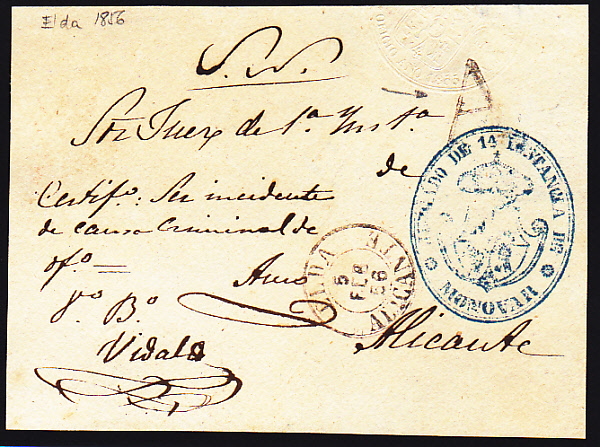 Elda 1856
S. N.
Sor Juez de 1ª Instª
de
Certifº: Ser incidente
de causa Criminal de
ofº =
Vº Bº
Vidal
Alicante
A
JUZGADO DE 1ª INSTANCIA DE
MONOVAR
ELDA
5
FEB
56
ALICANTE